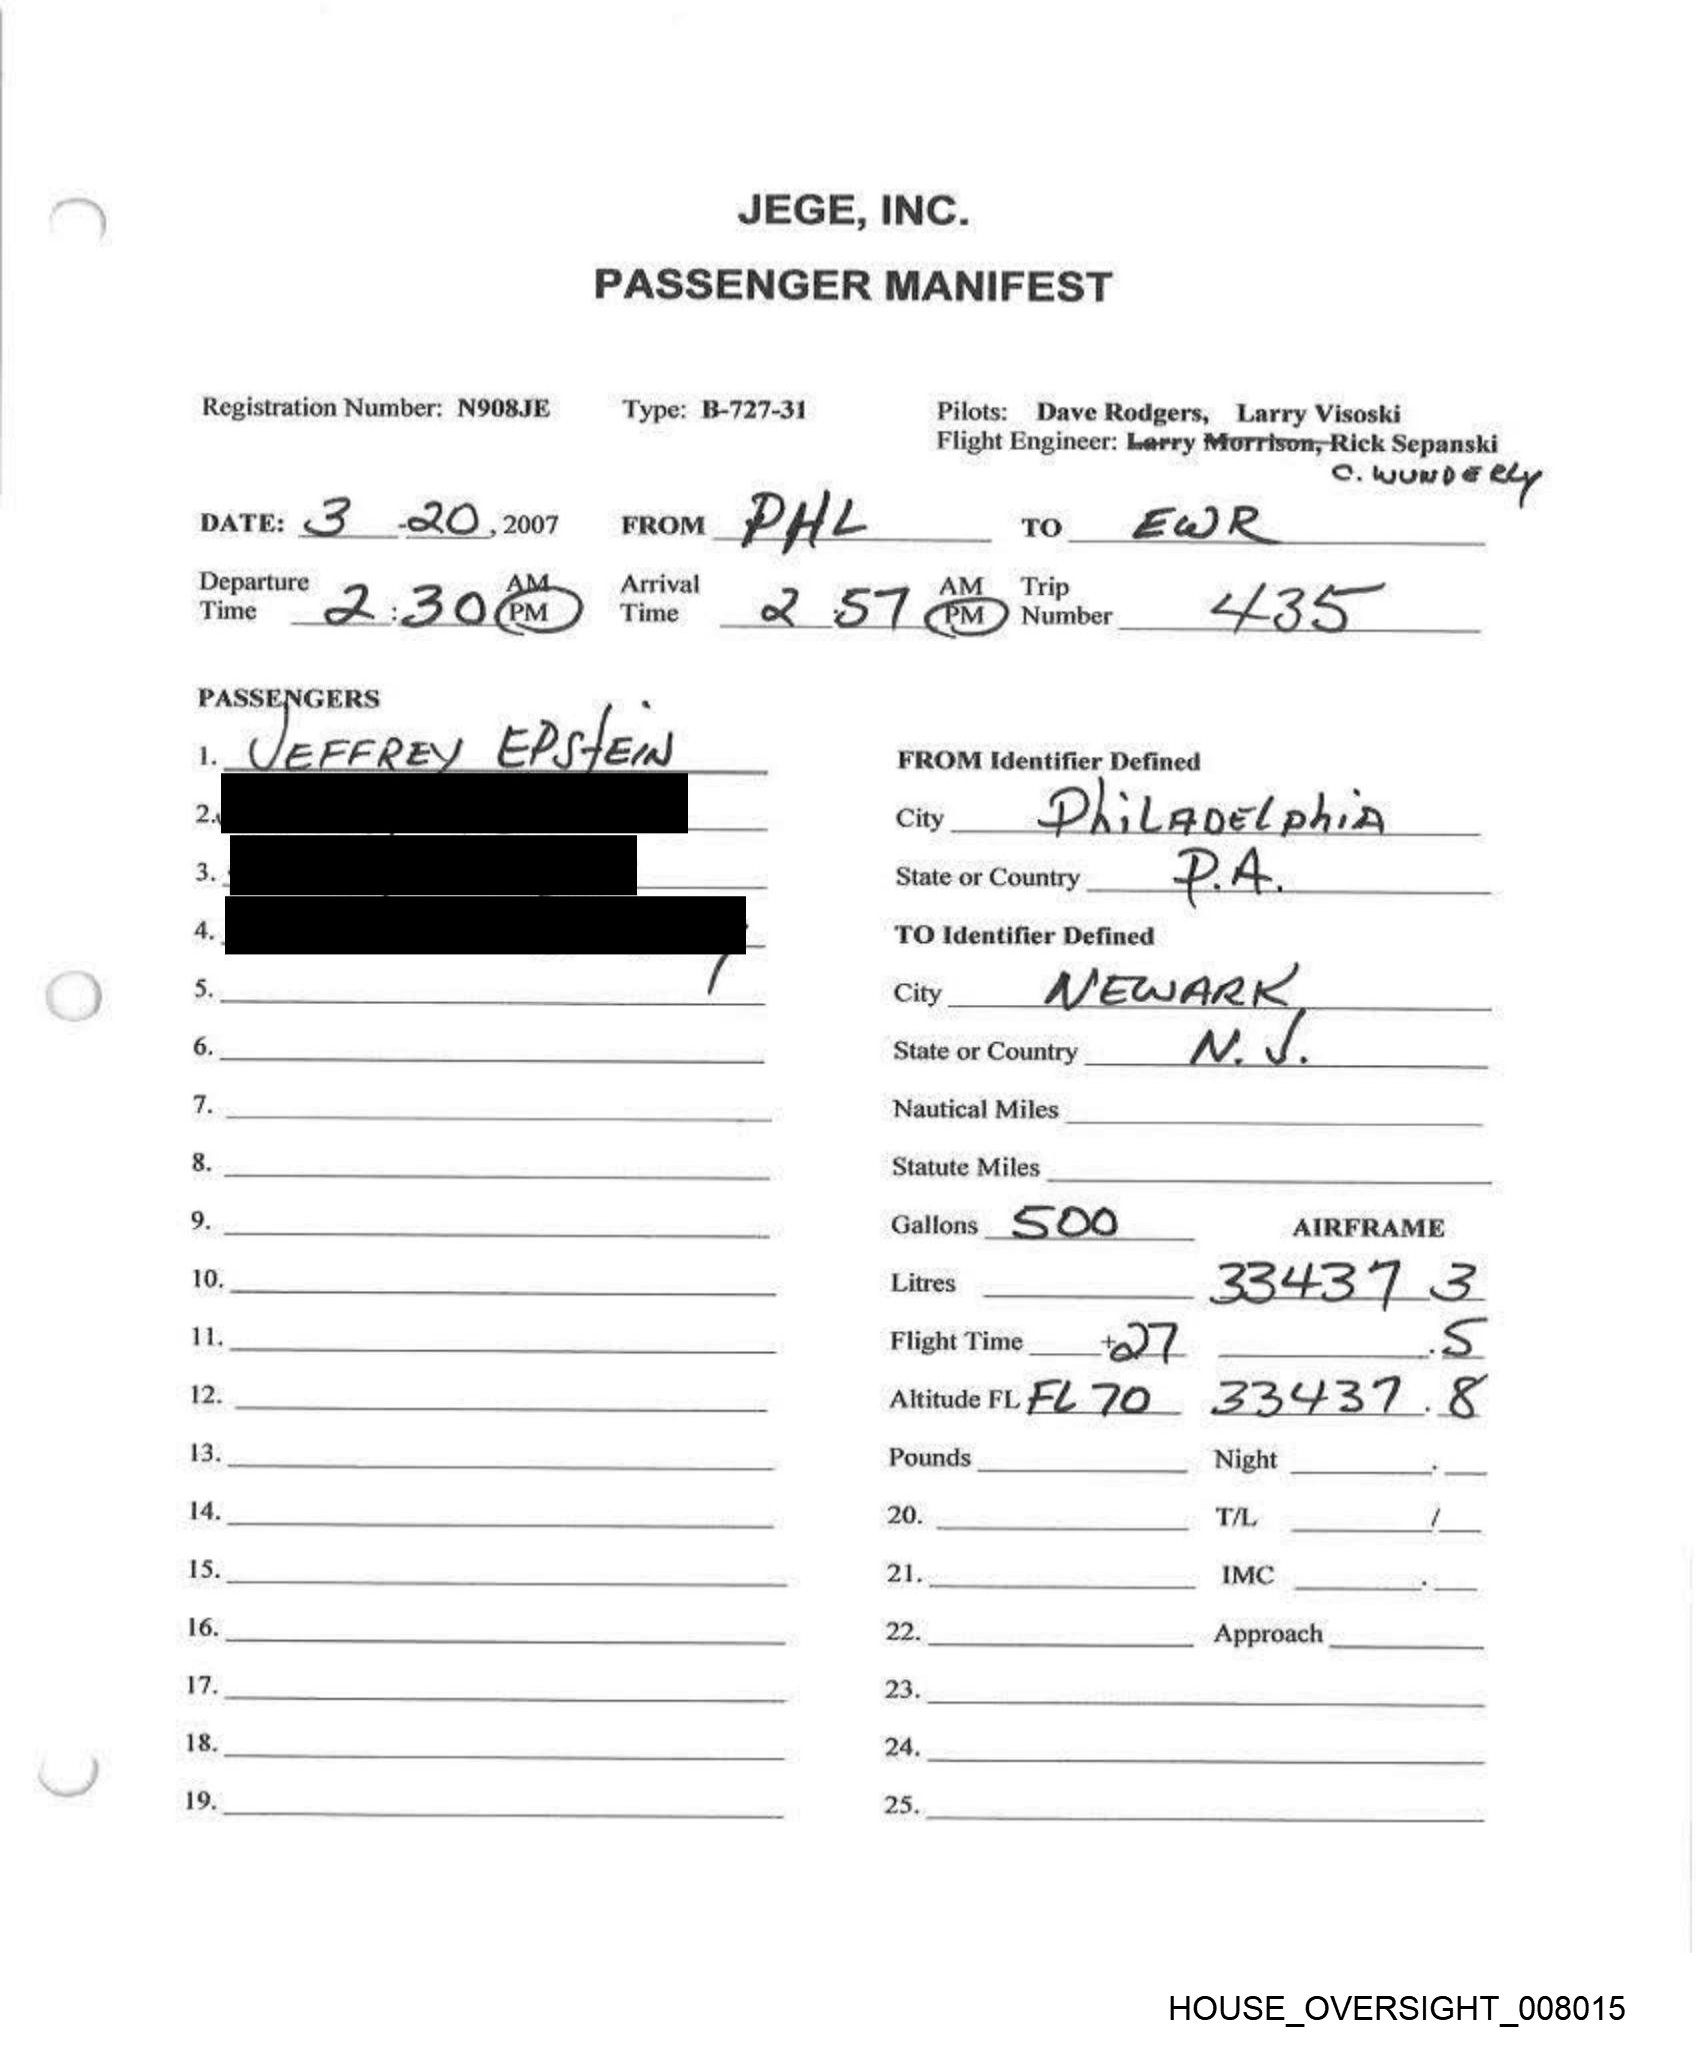 JEGE, INC.
PASSENGER MANIFEST
Registration Number: N908JE Type: B-727-31 Pilots: Dave Rodgers, Larry Visoski
Flight Engineer: Larry Morrison, Rick Sepanski
C. WUNDERLY
DATE: 3 -20, 2007 FROM PHL TO EWR
Departure Time 2:30 AM PM Arrival Time 2:57 AM PM Trip Number 435
PASSENGERS
1. JEFFREY EPStEIN
2.
3.
4.
5.
6.
7.
8.
9.
10.
11.
12.
13.
14.
15.
16.
17.
18.
19.
FROM Identifier Defined
City PhiLADELphiA
State or Country P.A.
TO Identifier Defined
City NEWARK
State or Country N.J.
Nautical Miles
Statute Miles
Gallons 500 AIRFRAME
Litres 33437 3
Flight Time +27 .5
Altitude FL FL 70 33437.8
Pounds Night .
20. T/L /
21. IMC .
22. Approach
23.
24.
25.
HOUSE_OVERSIGHT_008015